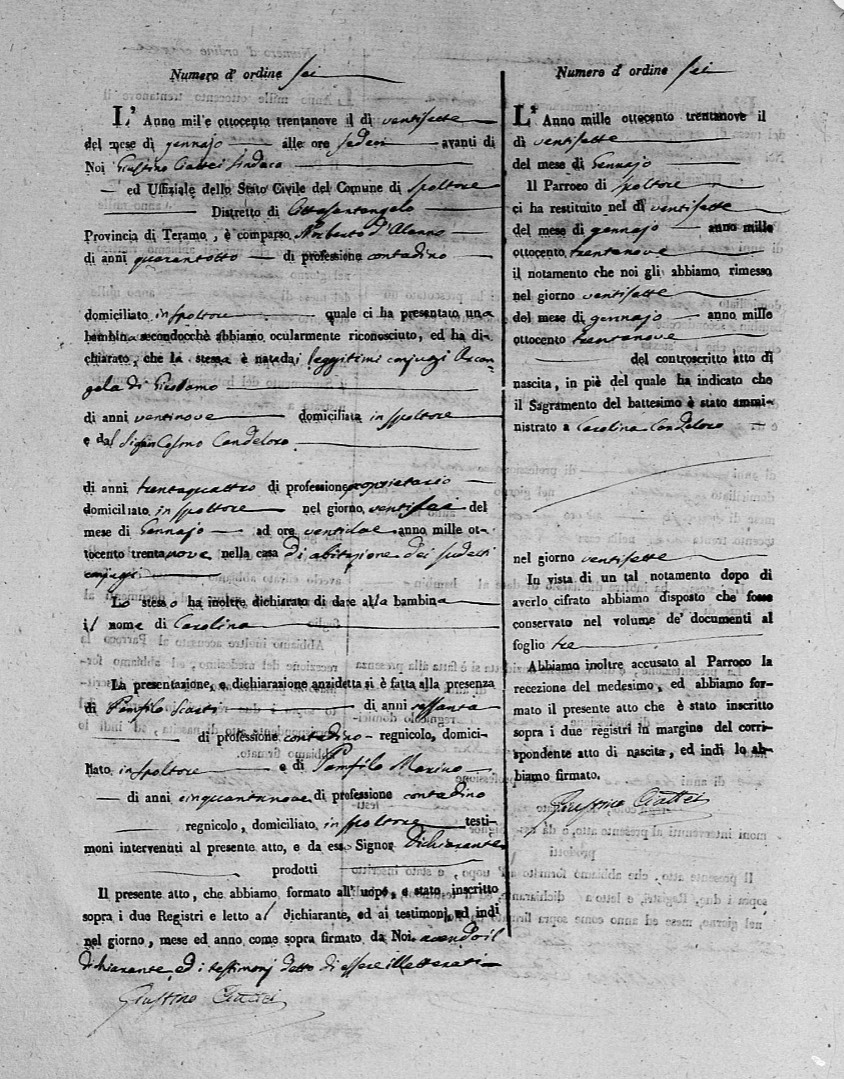 Numero d' ordine sei
L' Anno mille ottocento trentanove il dì ventisette
del mese di gennajo alle ore sedeci avanti di
Noi Giustino Ciattei Sindaco
ed Uffiziale dello Stato Civile del Comune di Spoltore
Distretto di Cittasantangelo
Provincia di Teramo, è comparso Norberto d'Alanno
di anni quarantotto di professione contadino
domiciliato in Spoltore quale ci ha presentato una
bambina secondocchè abbiamo ocularmente riconosciuto, ed ha di-
chiarato, che la stessa è nata dai leggittimi conjugi Arcan-
gela di Girolamo
di anni ventinove domiciliata in Spoltore
e dal Signor Candeloro
di anni trentaquattro di professione proprietario
domiciliato in Spoltore nel giorno ventisei del
mese di Gennajo ad ore ventidue anno mille ot-
tocento trentanove nella casa di abitazione dei sudetti
conjugi
Lo stesso ha inoltre dichiarato di dare alla bambina
il nome di Carolina
La presentazione, e dichiarazione anzidetta si è fatta alla presenza
di Panfilo di anni sessanta
di professione contadino regnicolo, domici-
liato in Spoltore e di Panfilo Marino
di anni cinquantanove di professione contadino
regnicolo, domiciliato in Spoltore testi-
moni intervenuti al presente atto, e da esso Signor dichiarante
prodotti
Il presente atto, che abbiamo formato all' uopo, è stato inscritto
sopra i due Registri e letto al dichiarante, ed ai testimonj, ed indi
nel giorno, mese ed anno come sopra firmato da Noi avendo il
dichiarante, ed i testimonj detto di essere illetterati
Giustino Ciattei
Numero d' ordine sei
L' Anno mille ottocento trentanove il
dì ventisette
del mese di Gennajo
Il Parroco di Spoltore
ci ha restituito nel dì ventisette
del mese di gennajo anno mille
ottocento trentanove
il notamento che noi gli abbiamo rimesso
nel giorno ventisette
del mese di gennajo anno mille
ottocento trentanove
del controscritto atto di
nascita, in piè del quale ha indicato che
il Sagramento del battesimo è stato ammi-
nistrato a Carolina Candeloro
nel giorno ventisette
In vista di un tal notamento dopo di
averlo cifrato abbiamo disposto che fosse
conservato nel volume de' documenti al
foglio tre
Abbiamo inoltre accusato al Parroco la
recezione del medesimo, ed abbiamo for-
mato il presente atto che è stato inscritto
sopra i due registri in margine del corri-
spondente atto di nascita, ed indi lo ab-
biamo firmato.
Giustino Ciattei